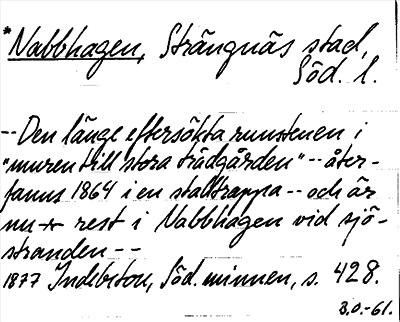 *Nabbhagen, Strängnäs stad,
Söd. l.
--Den länge eftersökta runstenen i
"muren till stora trädgården"--åter-
fanns 1864 i en stalltrappa--och är
nu rest i Nabbhagen vid sjö-
stranden--
1877 Indebetou, Söd. minnen, s. 428.
B.O.-61.